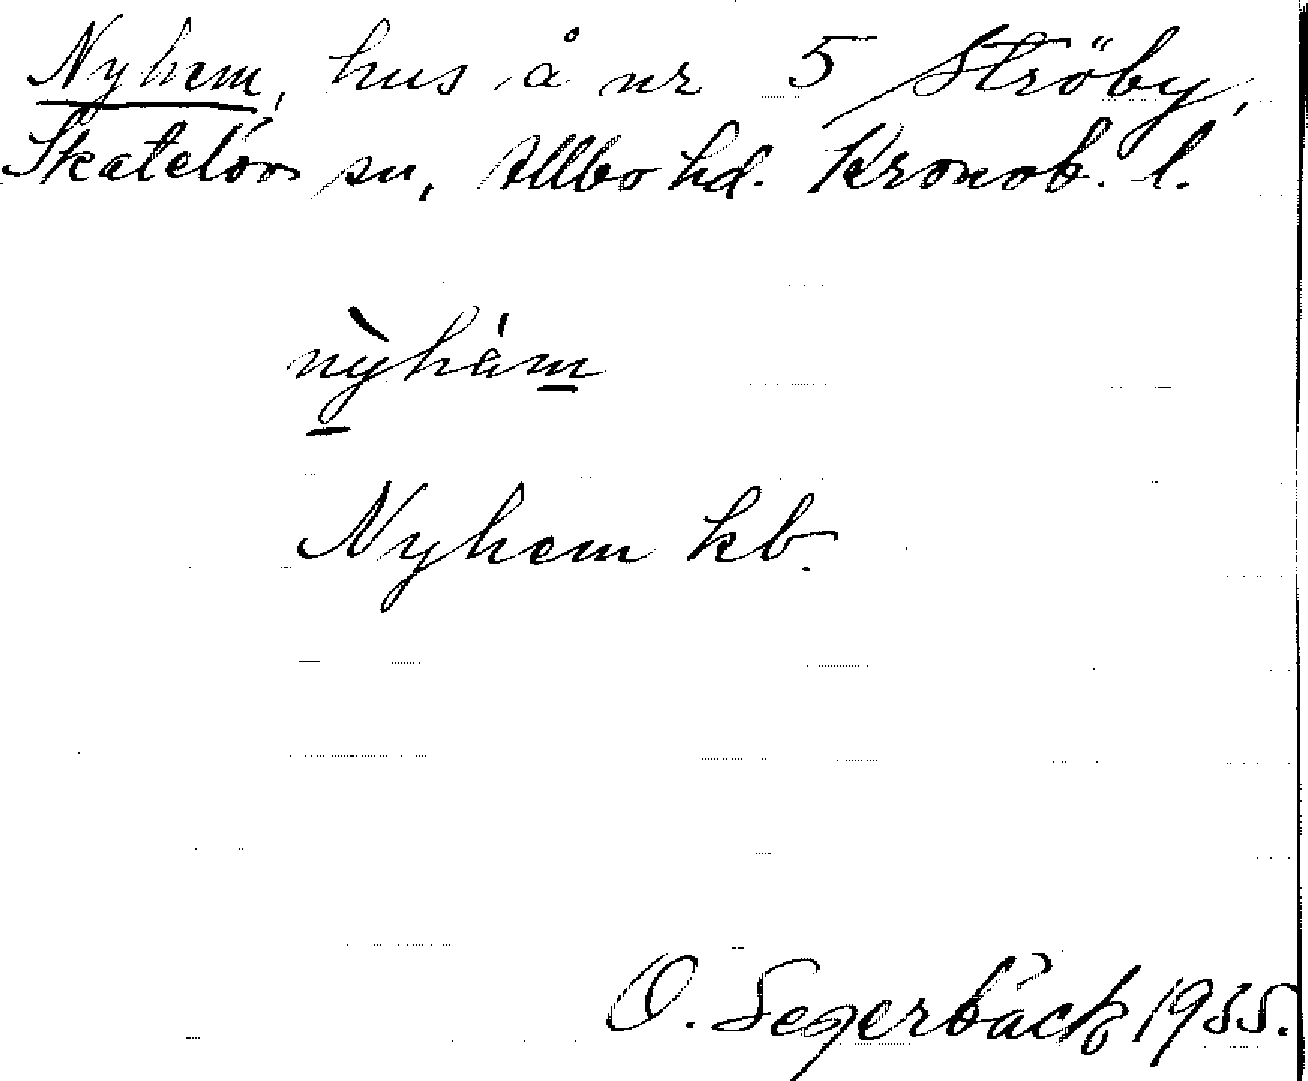 Nyhem, hus å nr 5 Ströby,
Skatelövs sn, Allbo hd. Kronob. l.
nỳhám
Nyhem kb.
O. Segerbäck 1935.